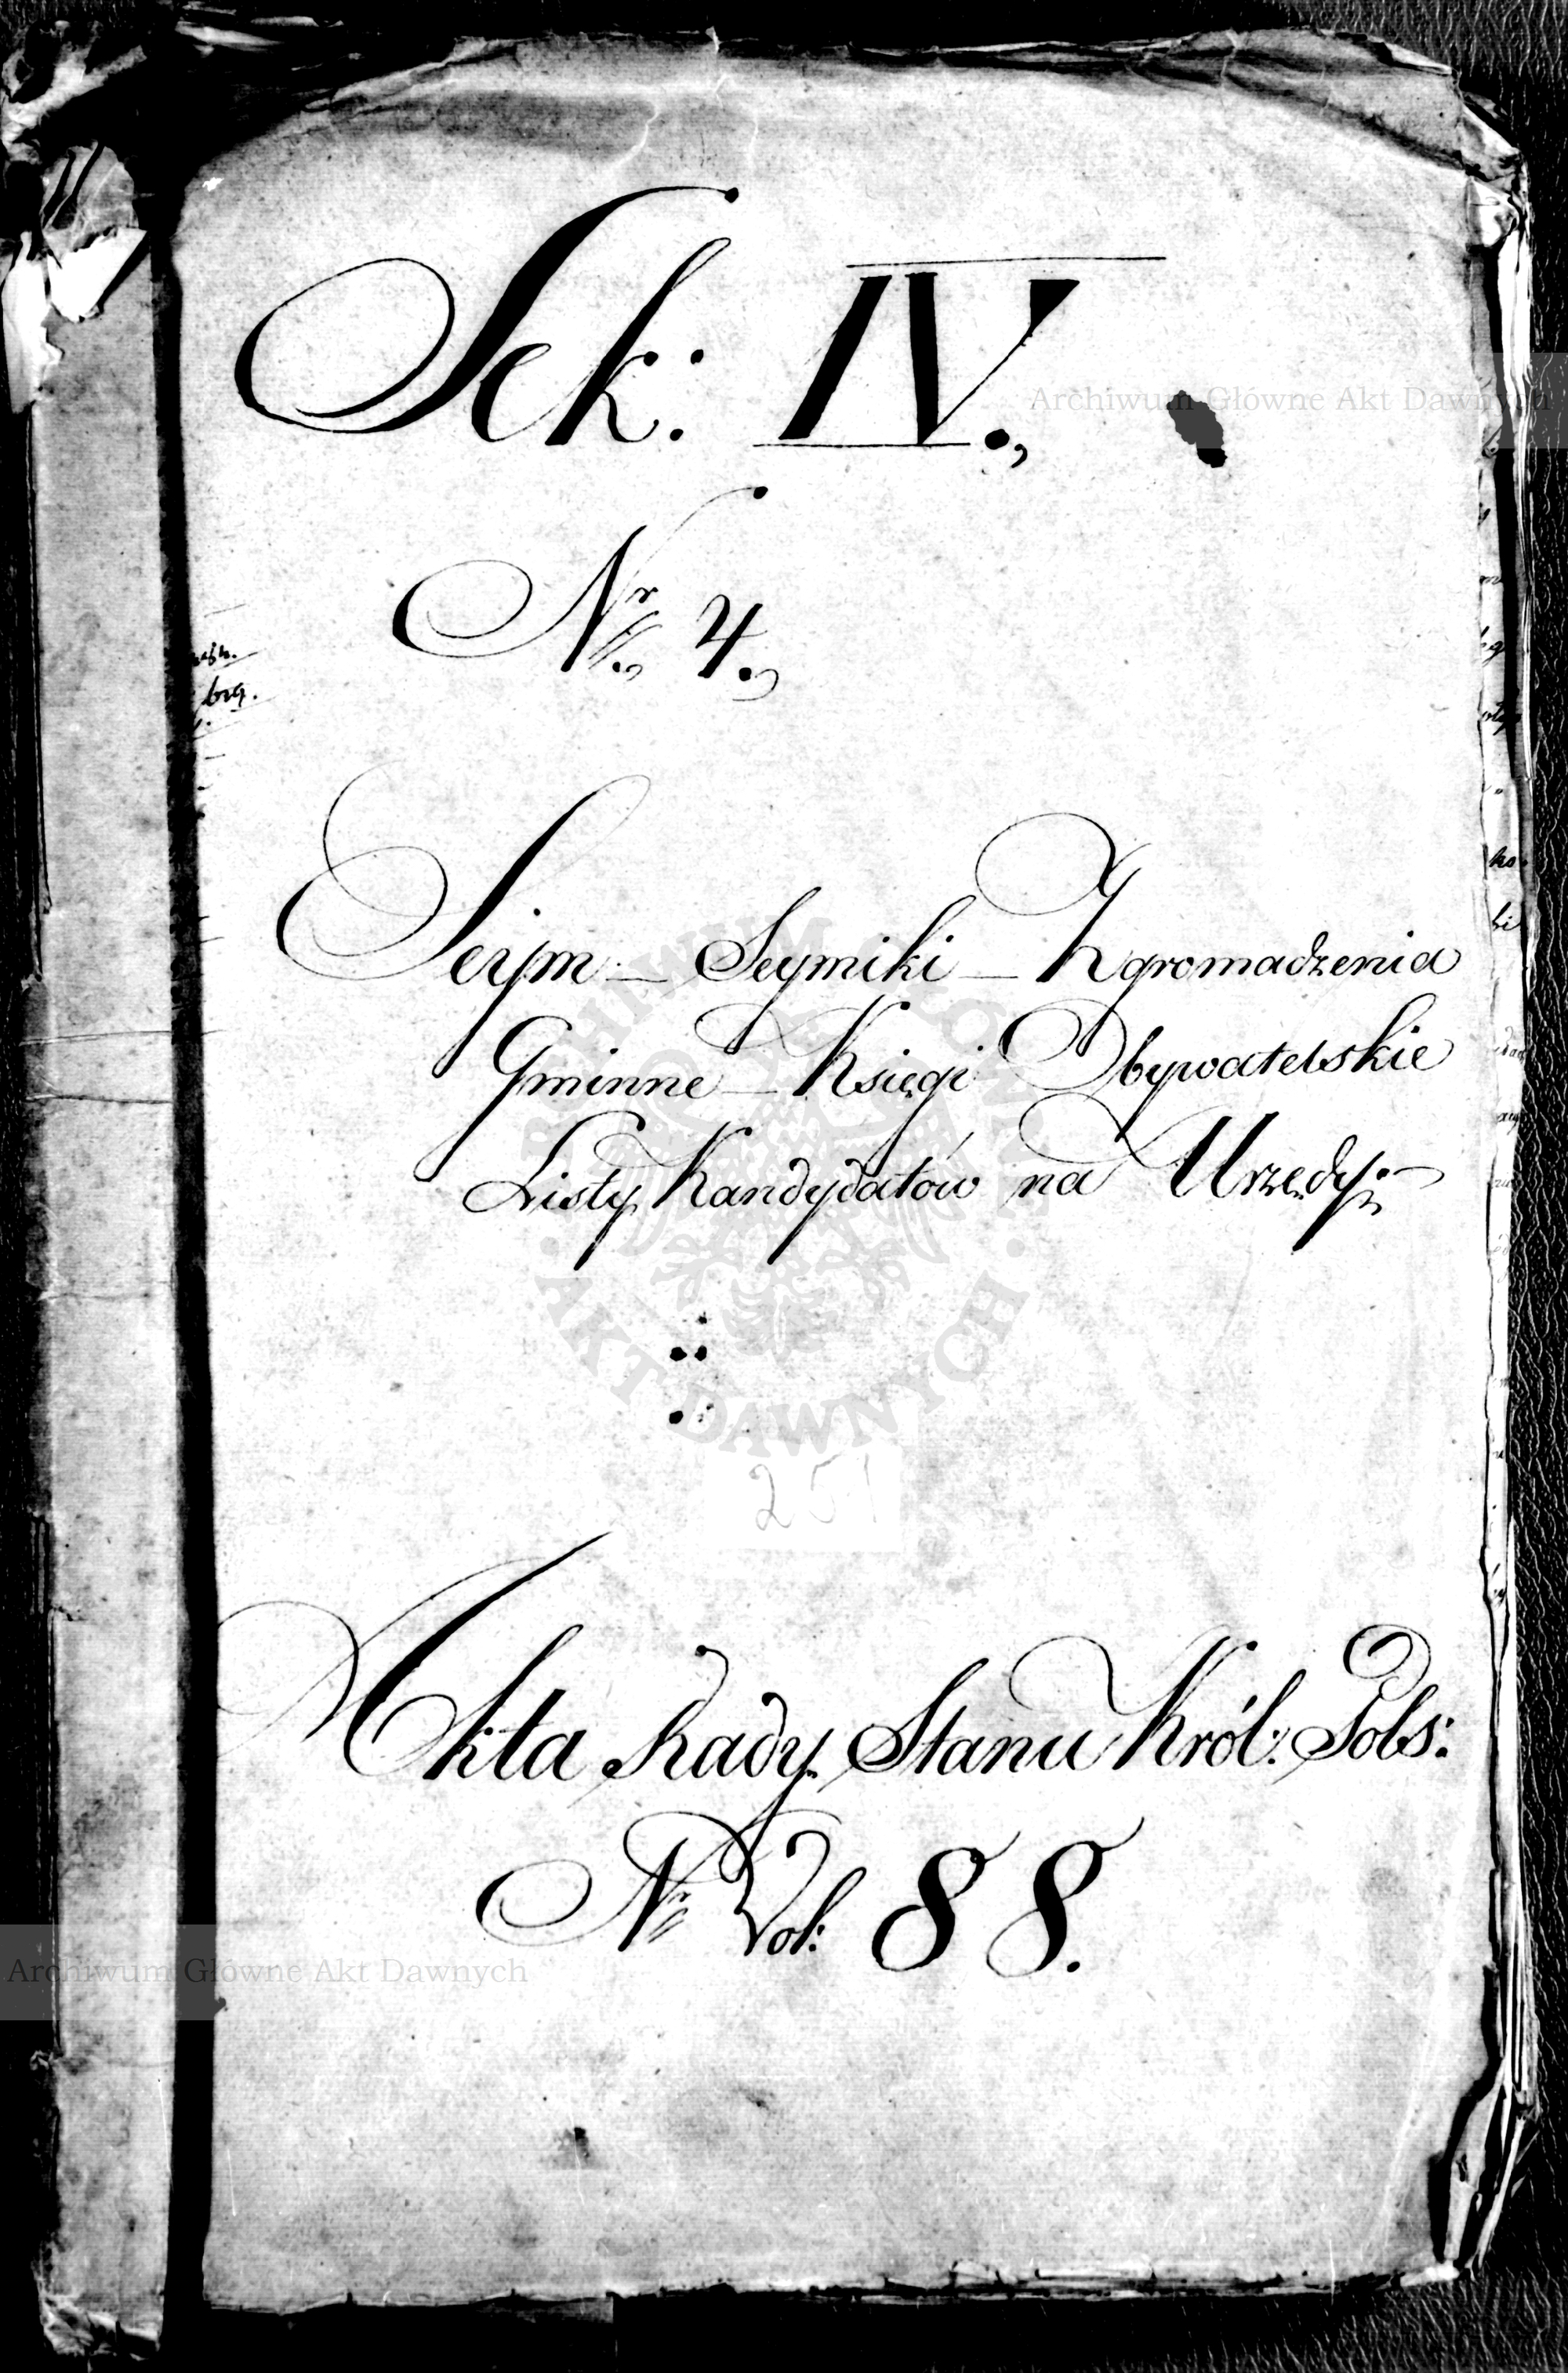 Sek: IV.,
Nr., 4.,
Seym — Seymiki — Zgromadzenia
Gminne — Księgi Obywatelskie
Listy Kandydatów na Urzędy.
251
Akta Rady Stanu Król: Pols:
Nr Vol: 88.
Archiwum Główne Akt Dawnych
ARCHIWUM GŁÓWNE
AKT DAWNYCH
Archiwum Główne Akt Dawnych